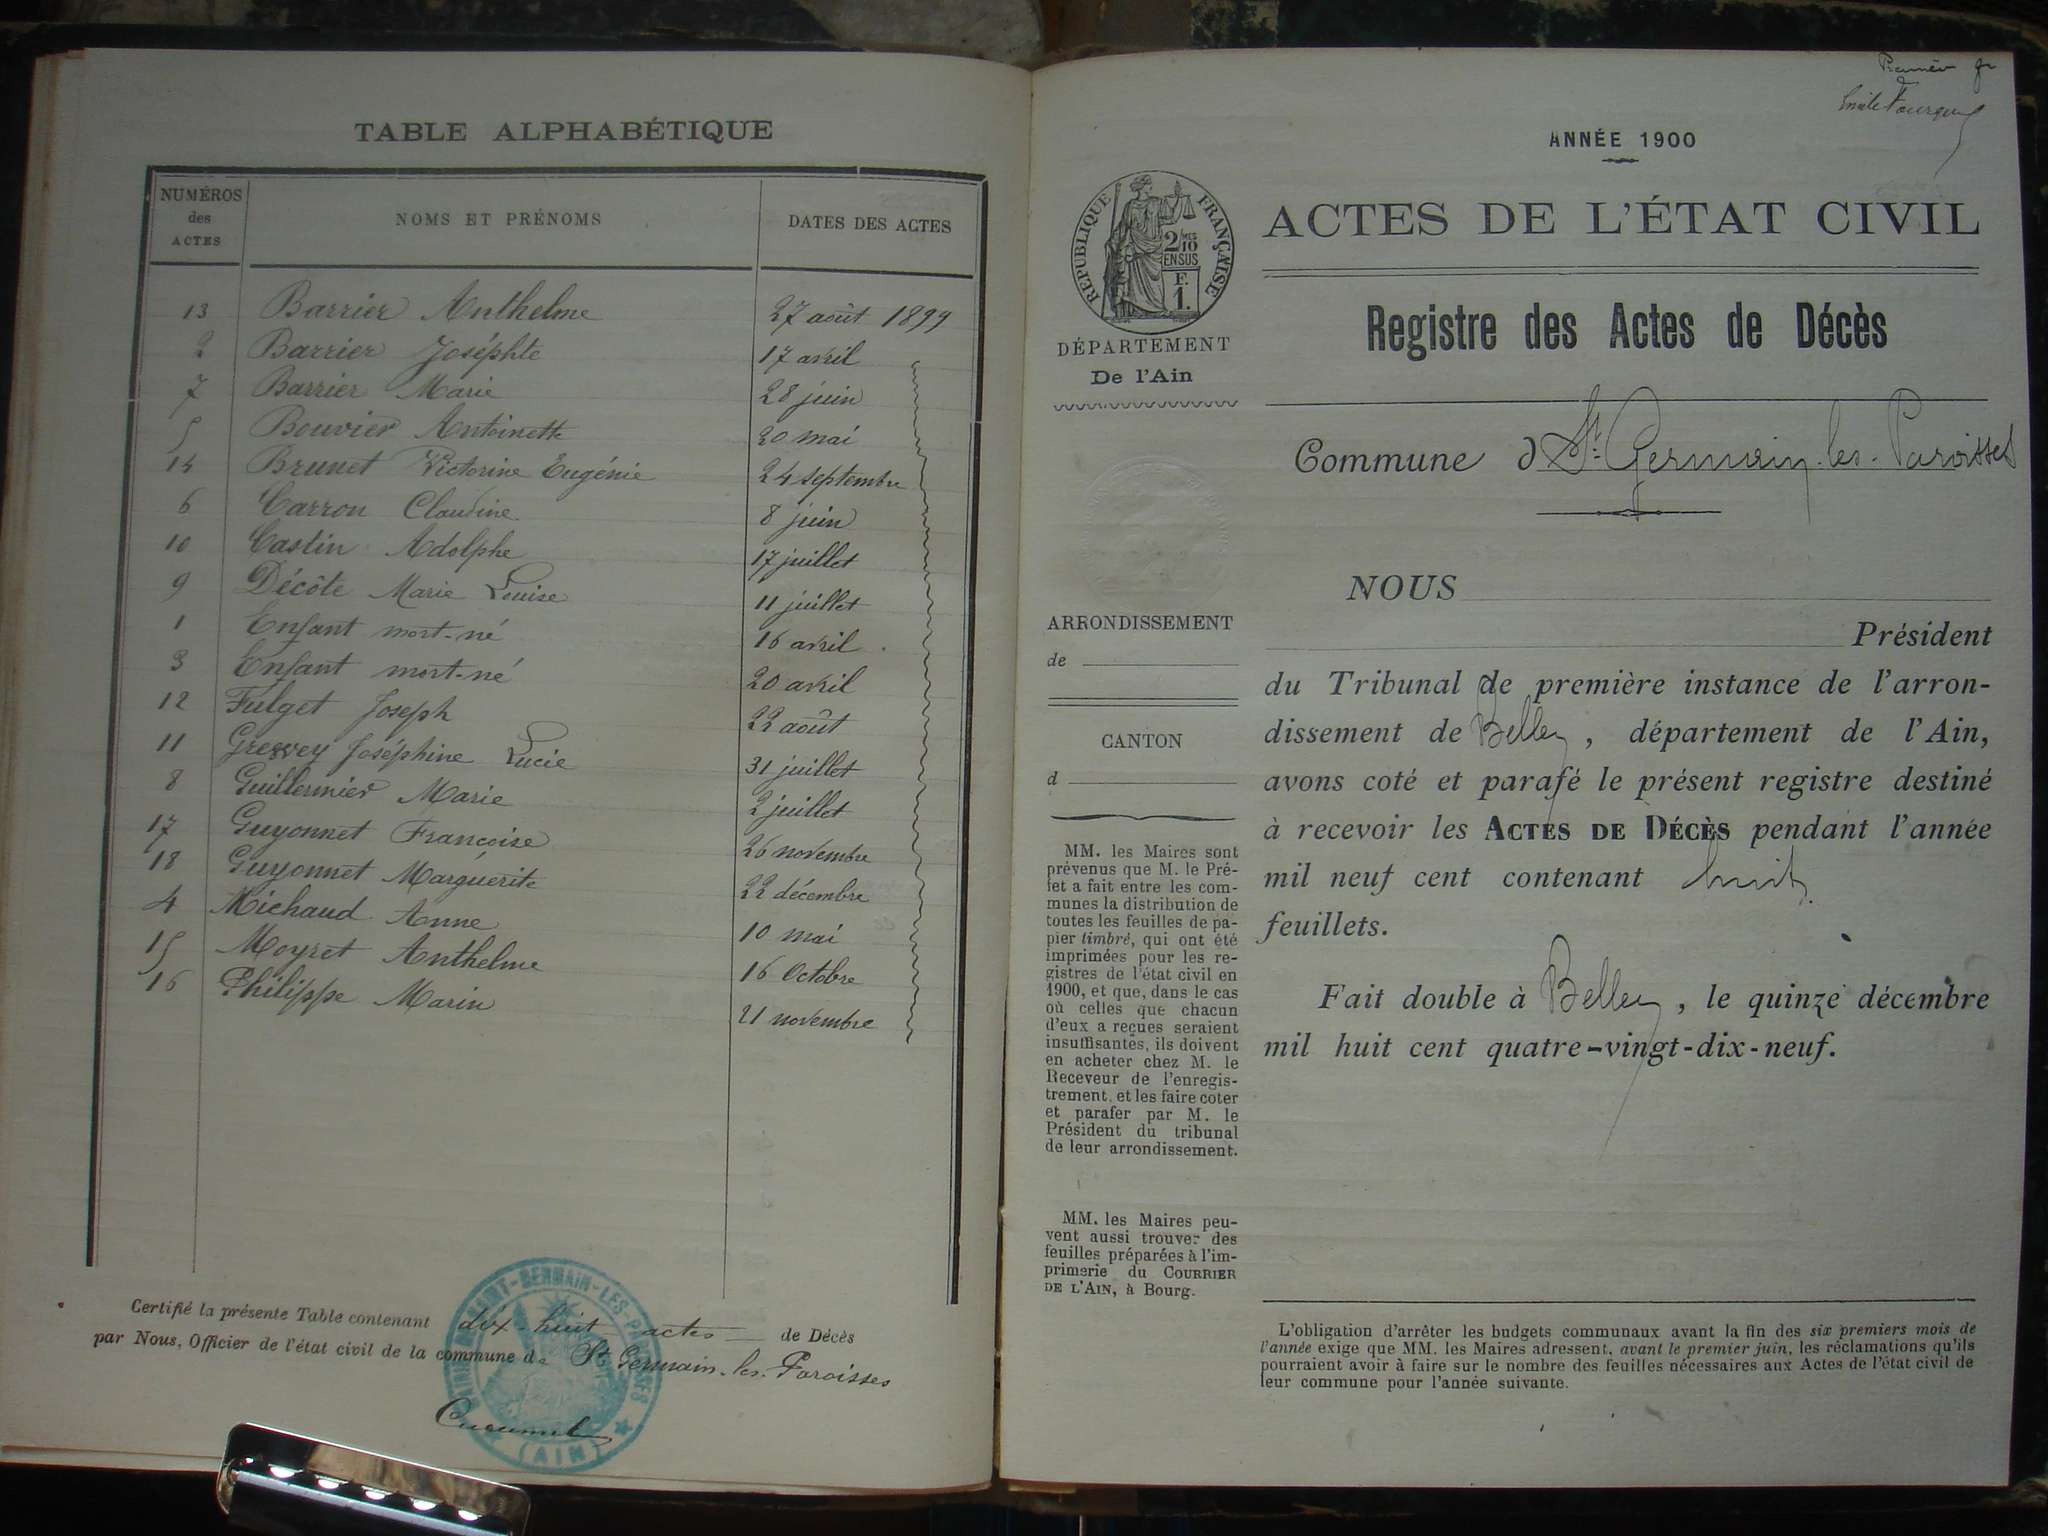 TABLE ALPHABÉTIQUE
NUMÉROS des ACTES NOMS ET PRÉNOMS DATES DES ACTES
13 Barrier Anthelme 27 août 1899
2 Barrier Joséphte 17 avril
7 Barrier Marie 28 juin
5 Bouvier Antoinette 20 mai
14 Brunet Victorine Eugénie 24 septembre
6 Carron Claudine 8 juin
10 Castin Adolphe 17 juillet
9 Décôte Marie Louise 11 juillet
1 Enfant mort-né 16 avril
3 Enfant mort-né 20 avril
12 Fulget Joseph 22 août
11 Joséphine Lucie 31 juillet
8 Guillermier Marie 2 juillet
17 Guyonnet Francoise 26 novembre
18 Guyonnet Marguérite 22 décembre
4 Michaud Anne 10 mai
15 Moyret Anthelme 16 Octobre
16 Philippe Marin 21 novembre
Certifié la présente Table contenant dix-huit actes de Décès
par Nous, Officier de l'état civil de la commune de St Germain-les-Paroisses
SAINT-GERMAIN-LES-PAROISSES
(AIN)
Premier
Emile
ANNÉE 1900
ACTES DE L'ÉTAT CIVIL
RÉPUBLIQUE FRANÇAISE
2/10 MES
EN SUS
F.
1.
DÉPARTEMENT
De l'Ain
Registre des Actes de Décès
Commune d St Germain-les-Paroisses
ARRONDISSEMENT
de
CANTON
d
MM. les Maires sont
prévenus que M. le Pré-
fet a fait entre les com-
munes la distribution de
toutes les feuilles de pa-
pier timbré, qui ont été
imprimées pour les re-
gistres de l'état civil en
1900, et que, dans le cas
où celles que chacun
d'eux a reçues seraient
insuffisantes, ils doivent
en acheter chez M. le
Receveur de l'enregis-
trement, et les faire coter
et parafer par M. le
Président du tribunal
de leur arrondissement.
MM. les Maires peu-
vent aussi trouver des
feuilles préparées à l'im-
primerie du COURRIER
DE L'AIN, à Bourg.
NOUS
Président
du Tribunal de première instance de l'arron-
dissement de Belley, département de l'Ain,
avons coté et parafé le présent registre destiné
à recevoir les ACTES DE DÉCÈS pendant l'année
mil neuf cent contenant huit
feuillets.
Fait double à Belley, le quinze décembre
mil huit cent quatre-vingt-dix-neuf.
L'obligation d'arrêter les budgets communaux avant la fin des six premiers mois de
l'année exige que MM. les Maires adressent, avant le premier juin, les réclamations qu'ils
pourraient avoir à faire sur le nombre des feuilles nécessaires aux Actes de l'état civil de
leur commune pour l'année suivante.